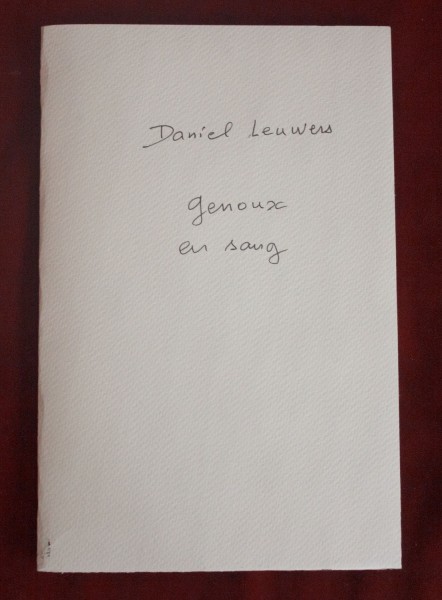 Daniel Leuwers
genoux
en sang